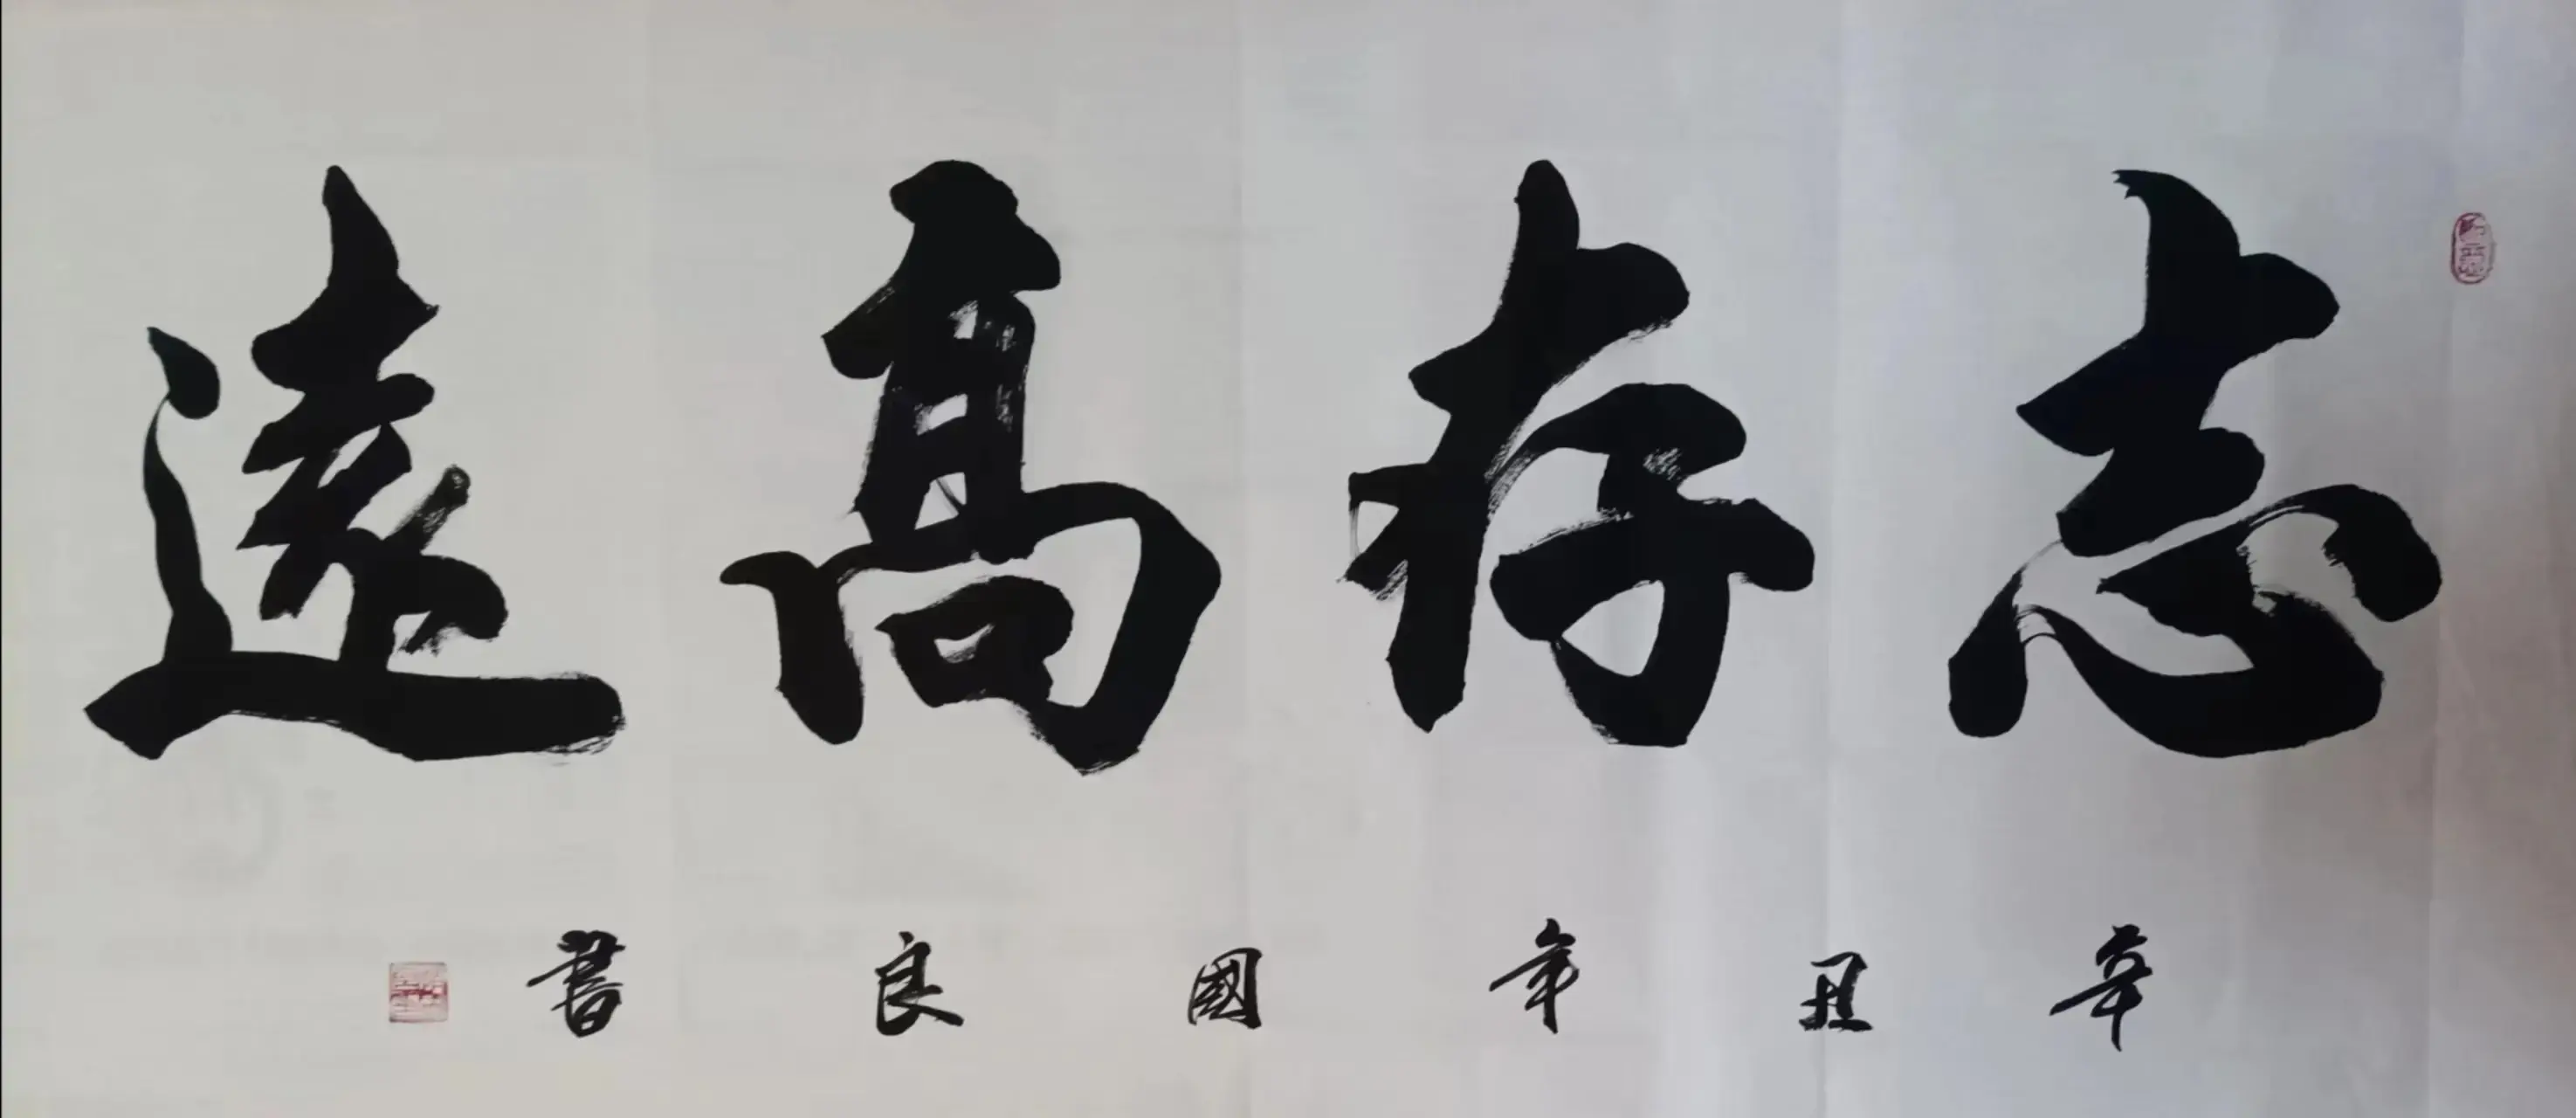 志存高遠
辛丑年國良書